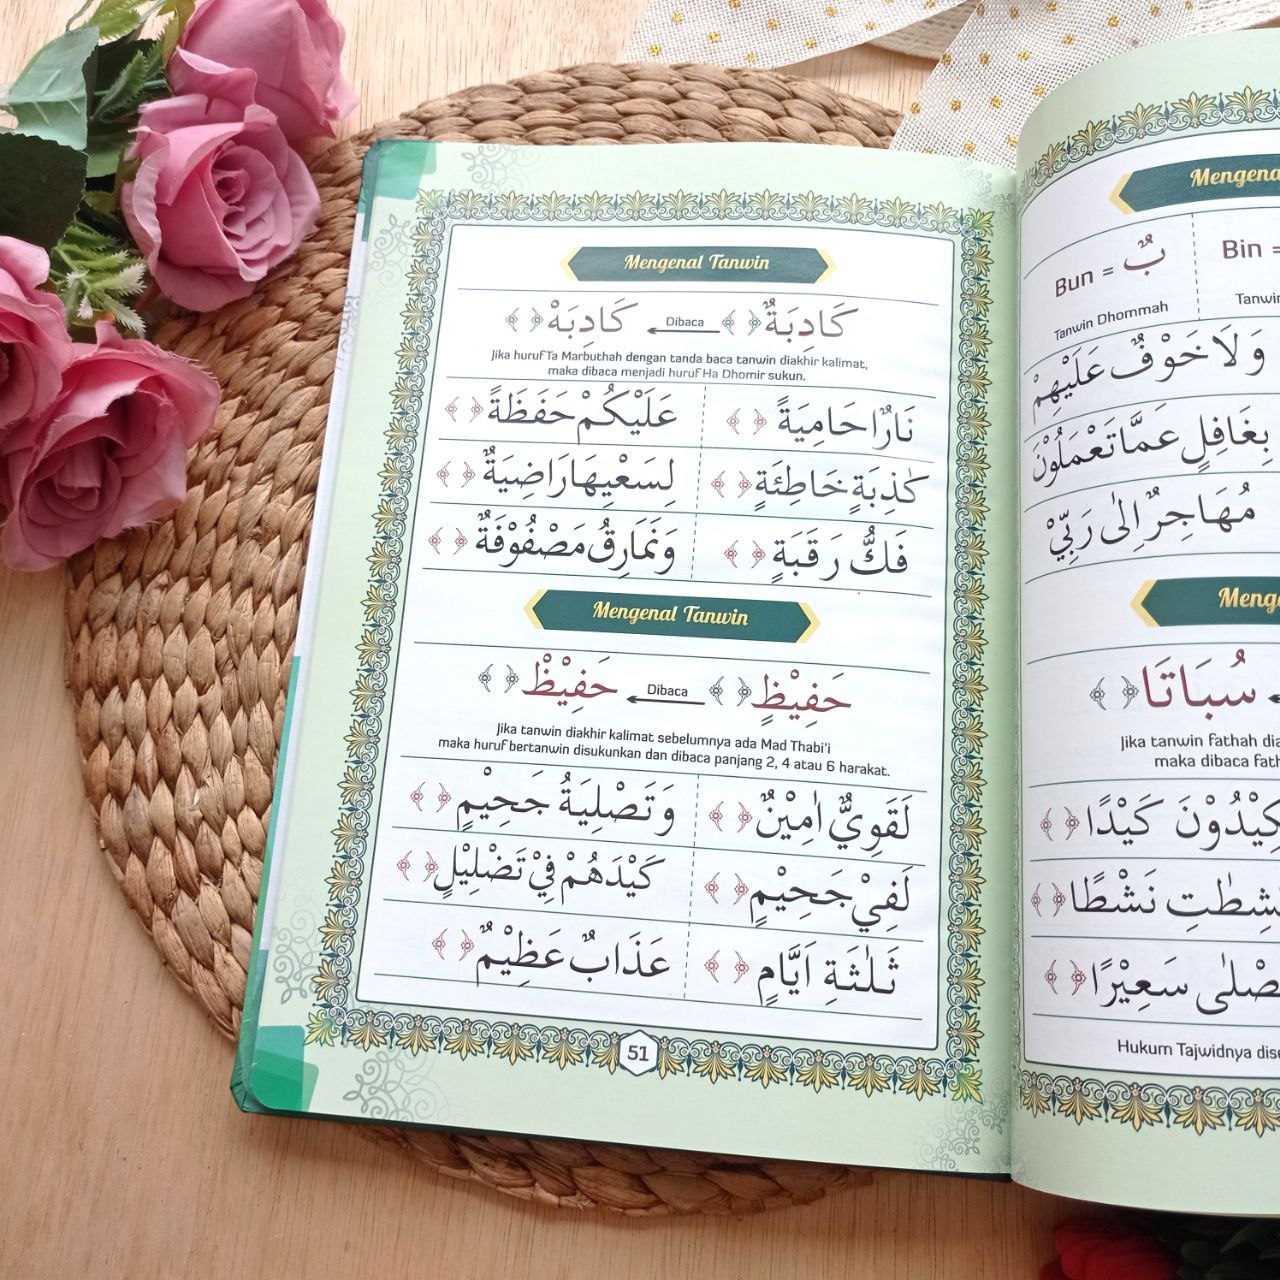 Mengenal Tanwin
كَاذِبَةٌ Dibaca كَاذِبَهْ
Jika huruf Ta Marbuthah dengan tanda baca tanwin diakhir kalimat,
maka dibaca menjadi huruf Ha Dhomir sukun.
نَارٌ احَامِيَةً عَلَيْكُمْ حَفَظَةً
كٰذِبَةٍ خَاطِئَةٍ لِسَعْيِهَا رَاضِيَةٌ
فَكُّ رَقَبَةٍ وَنَمَارِقُ مَصْفُوْفَةٌ
Mengenal Tanwin
حَفِيْظٍ Dibaca حَفِيْظْ
Jika tanwin diakhir kalimat sebelumnya ada Mad Thabi'i
maka huruf bertanwin disukunkan dan dibaca panjang 2, 4 atau 6 harakat.
لَقَوِيٌّ اٰمِيْنٌ وَتَصْلِيَةُ جَحِيْمٍ
لَفِيْ جَحِيْمٍ كَيْدَهُمْ فِيْ تَضْلِيْلٍ
ثَلٰثَةِ اَيَّامٍ عَذَابٌ عَظِيْمٌ
51
Bun = بٌ Bin =
Tanwin Dhommah
وَلَا خَوْفٌ عَلَيْهِمْ
بِغَافِلٍ عَمَّا تَعْمَلُوْنَ
مُهَاجِرٌ اِلٰى رَبِّيْ
سُبَاتَا
Jika tanwin fathah
maka dibaca
كَيْدًا
نَشْطًا
سَعِيْرًا
Hukum Tajwidnya